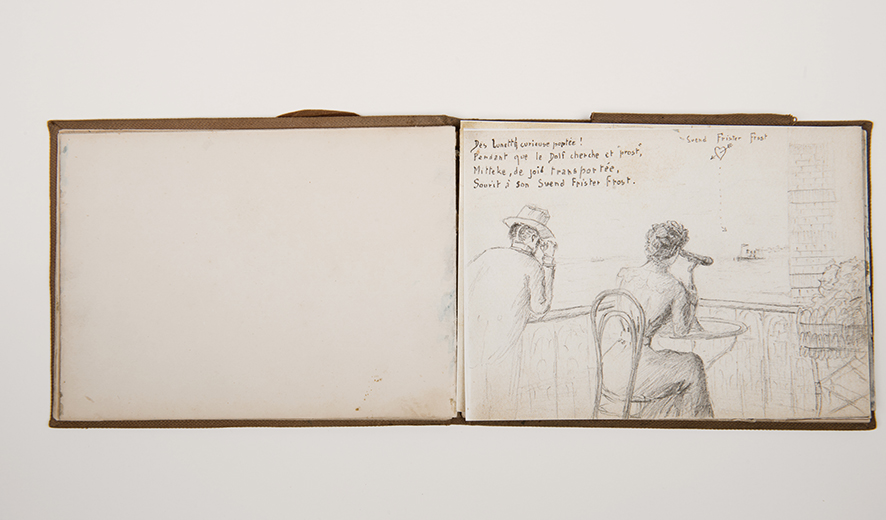 Des Lunettes curieuse portée !
Pendant que le Dolf cherche et "prost",
Mitteke, de joie transportée,
Sourit à son Svend Frister Frost.
Svend Frister Frost